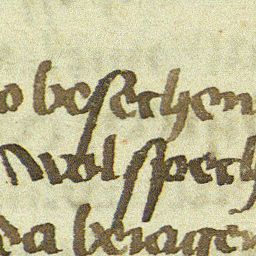 o beſechen
wol ſpech
da beragen